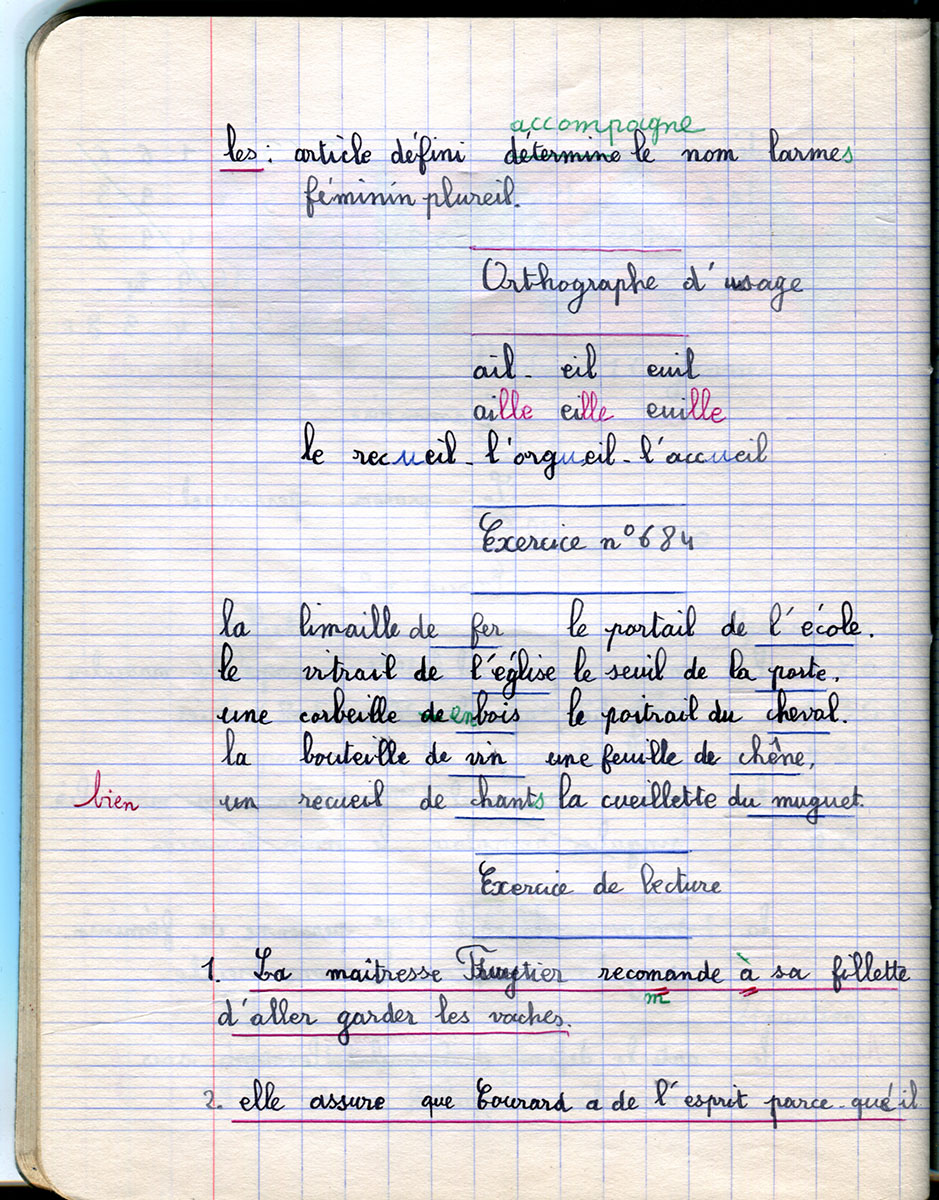 accompagne
les : article défini détermine le nom larmes
féminin plureil.
Orthographe d'usage
ail - eil euil
aille eille euille
le recueil - l'orgueil - l'accueil
Exercice n° 684
la limaille de fer le portail de l'école.
le vitrail de l'église le seuil de la porte.
une corbeille de en bois le poitrail du cheval.
la bouteille de vin une feuille de chêne,
bien un recueil de chants la cueillette du muguet.
Exercice de lecture
1. La maîtresse recomande à sa fillette
m
d'aller garder les vaches.
2. elle assure que Courard a de l'esprit parce-qué'il